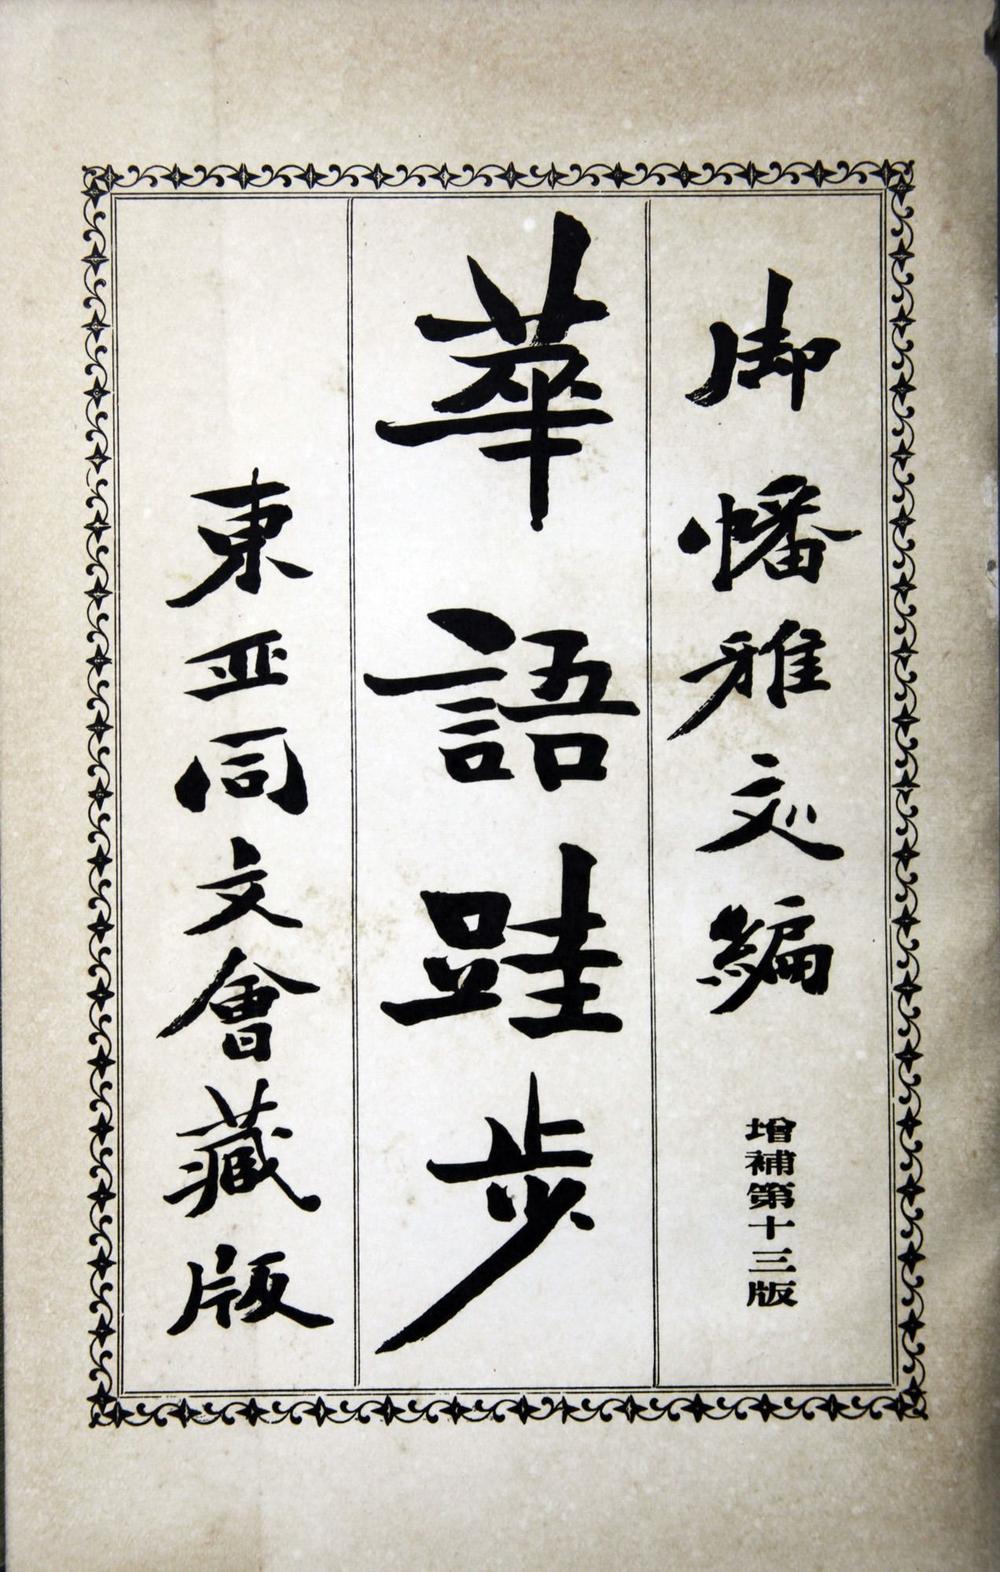 御幡雅文編
增補第十三版
華語跬步
東亞同文會藏版